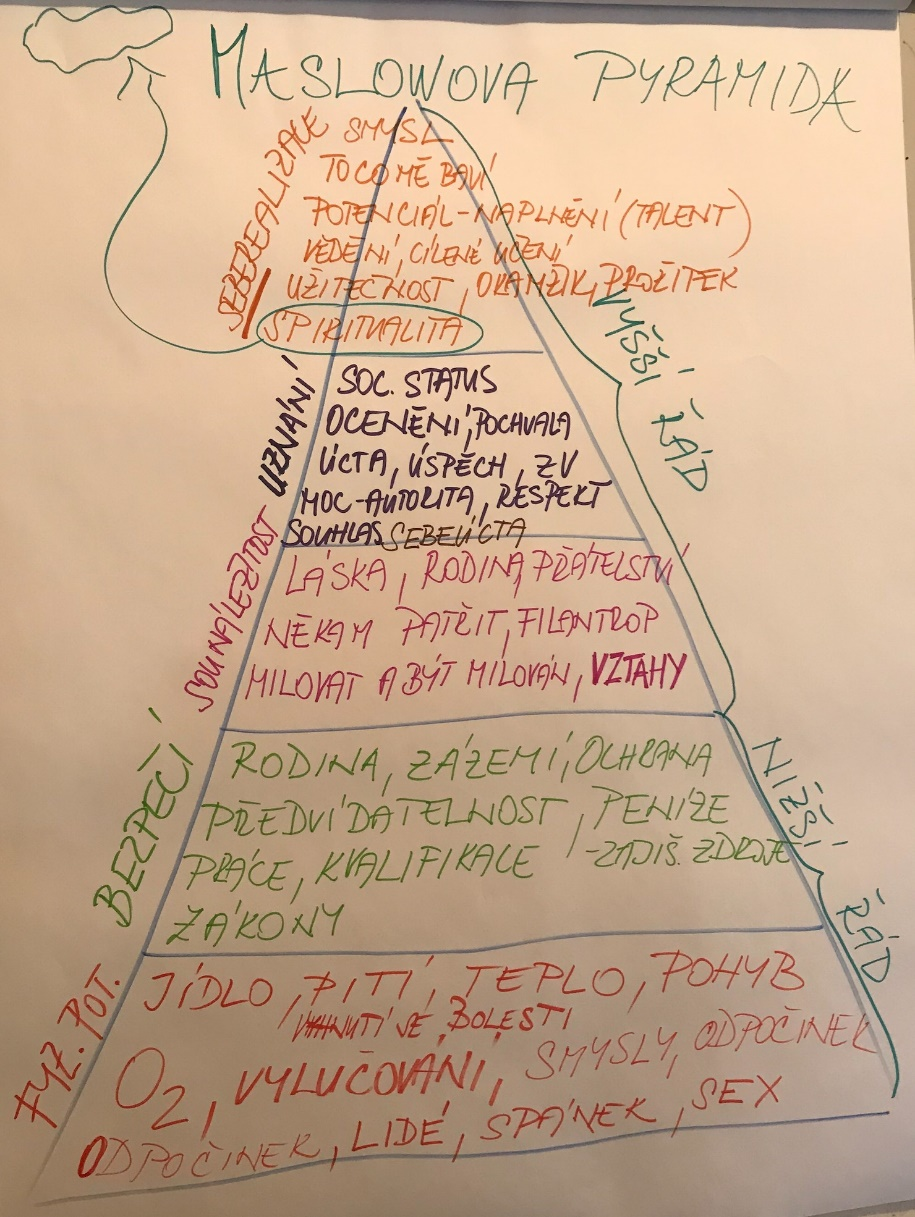 MASLOWOVA PYRAMIDA
SEBEREALIZACE
SMYSL
TO CO MĚ BAVÍ
POTENCIÁL-NAPLNĚNÍ (TALENT)
VĚDĚNÍ, CÍLENÉ UČENÍ
UŽITEČNOST, OKAMŽIK, PROŽITEK
SPIRITUALITA
VYŠŠÍ ŘÁD
UZNÁNÍ
SOC. STATUS
OCENĚNÍ, POCHVALA
ÚCTA, ÚSPĚCH, ZV
MOC-AUTORITA, RESPEKT
SOUHLAS SEBEÚCTA
SOUNÁLEŽITOST
LÁSKA, RODINA, PŘÁTELSTVÍ
NĚKAM PATŘIT, FILANTROP
MILOVAT A BÝT MILOVÁN, VZTAHY
BEZPEČÍ
RODINA, ZÁZEMÍ, OCHRANA
PŘEDVÍDATELNOST, PENÍZE
PRÁCE, KVALIFIKACE -ZAJIŠ. ZDROJE
ZÁKONY
NIŽŠÍ ŘÁD
FYZ. POT.
JÍDLO, PITÍ, TEPLO, POHYB
VYHNUTÍ SE BOLESTI
O2, VYLUČOVÁNÍ, SMYSLY, ODPOČINEK
ODPOČINEK, LIDÉ, SPÁNEK, SEX